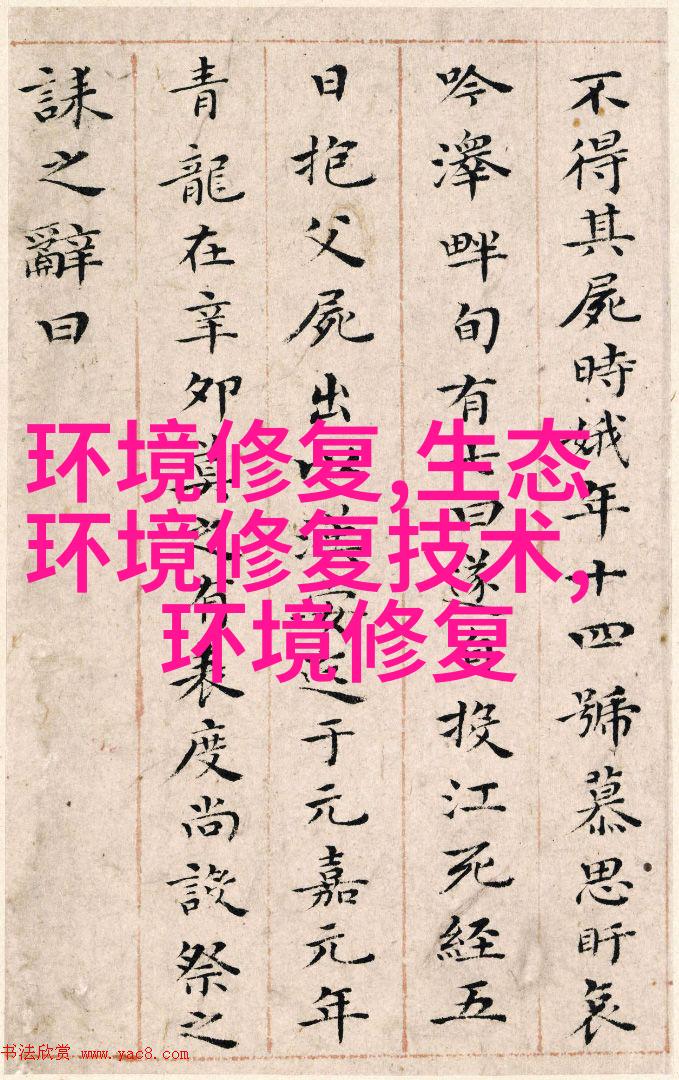 不得其屍時娥年十四號慕思盱哀
吟澤畔旬有七日遂自投江死經五
日抱父屍出以漢安迄于元嘉元年
青龍在辛卯莫之有表度尚設祭之
誄之辭曰
环境修复,生态
环境修复技术,
环境修复
书法欣赏 www.yac8.com